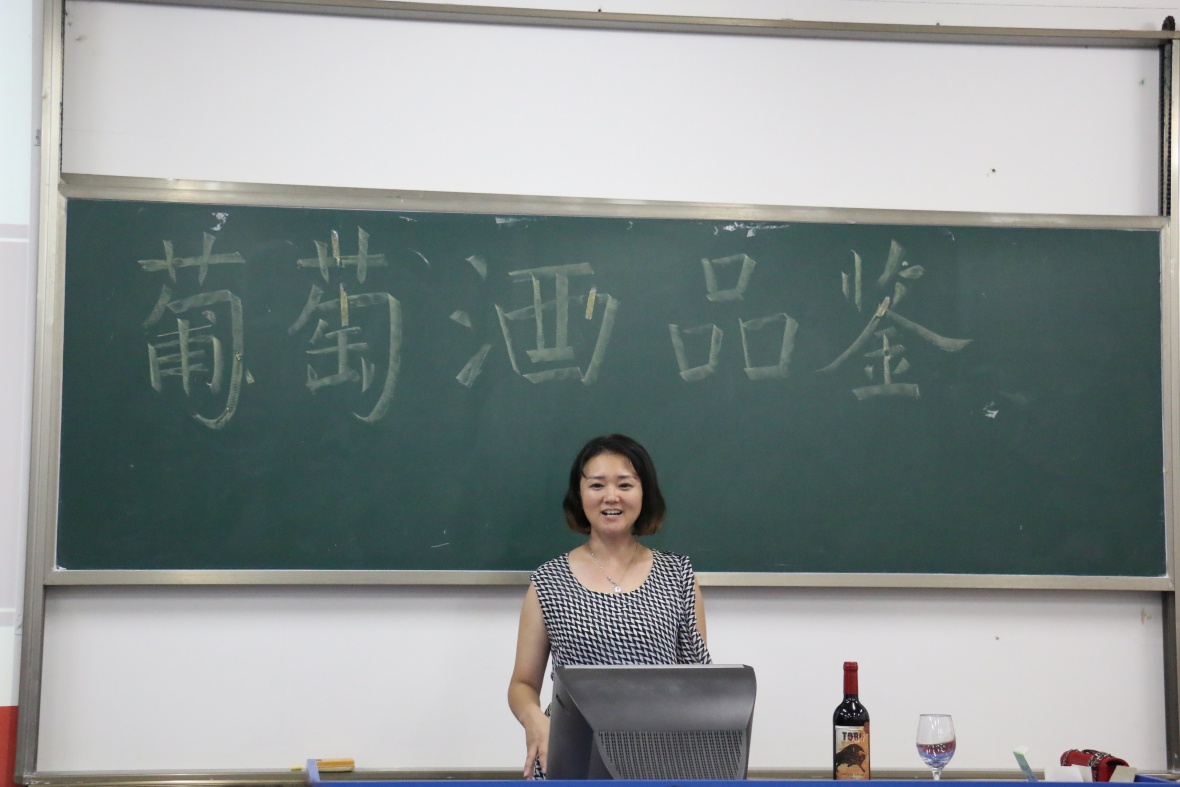 葡萄酒品鉴